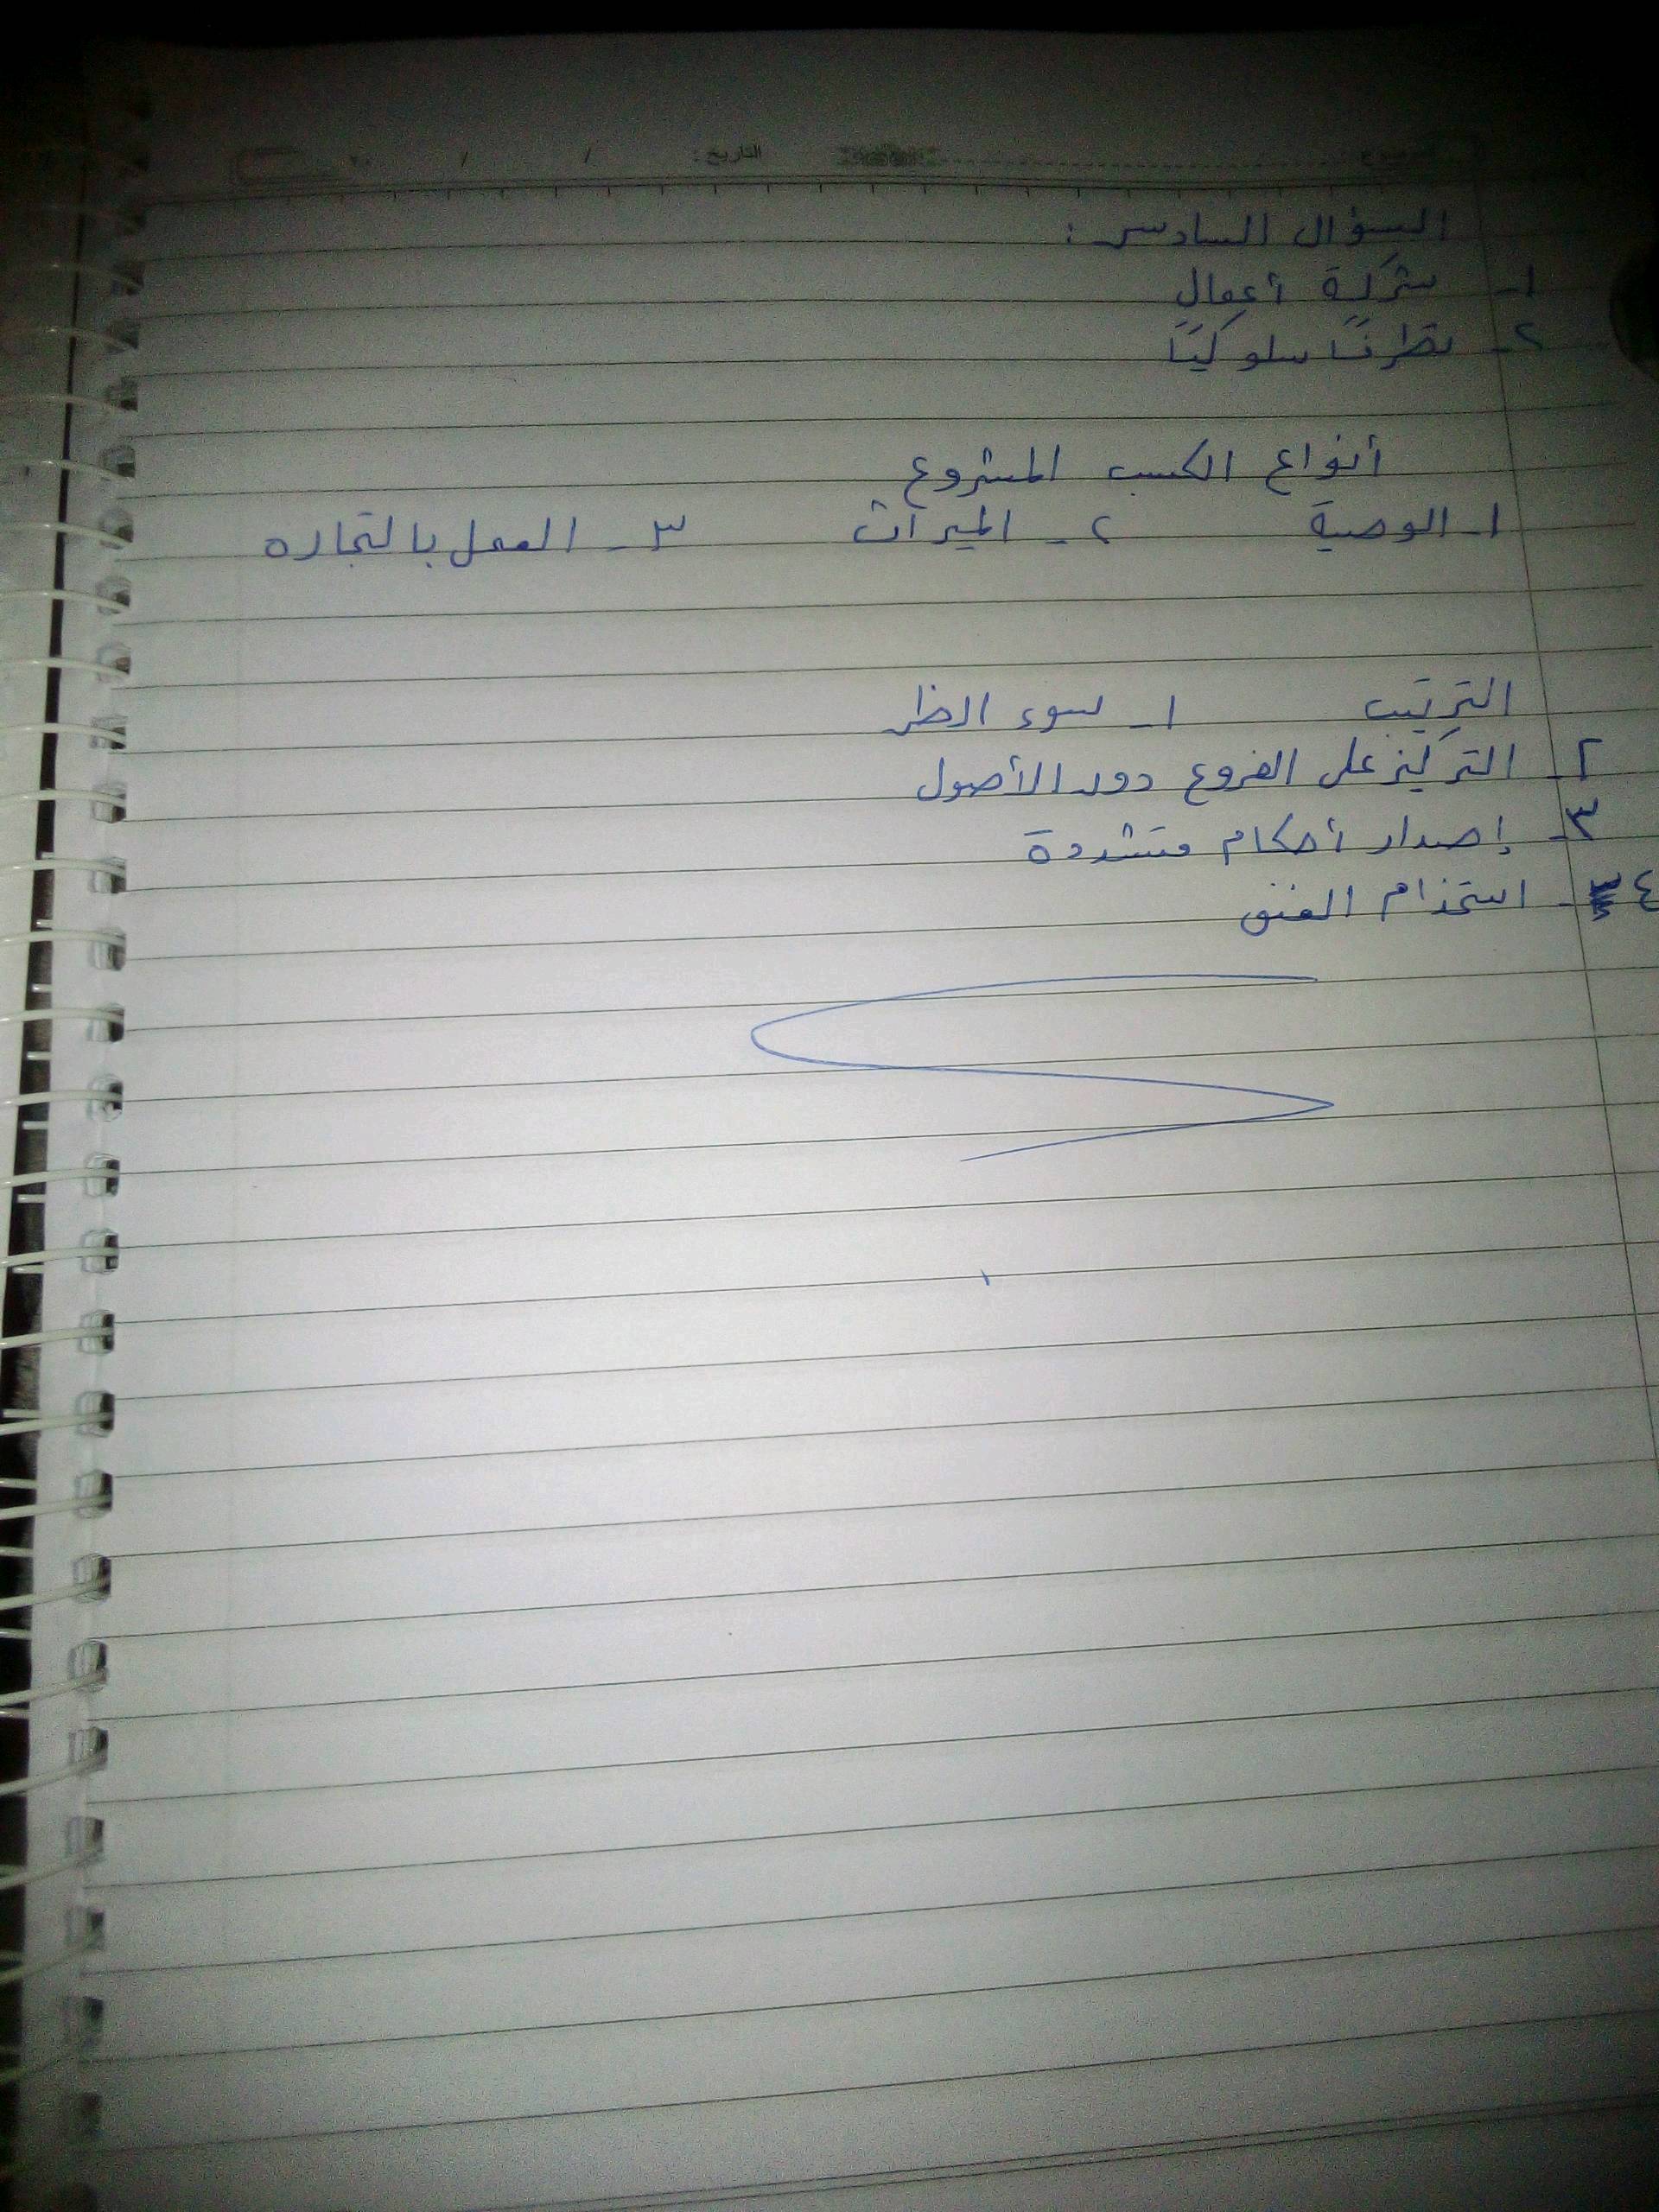 التاريخ: / /
السؤال السادس:
١- شركة أعمال
٢- تطرفًا سلوكيًا
أنواع الكسب المشروع
١- الوصية ٢- الميراث ٣- العمل بالتجاره
الترتيب ١- سوء الظن
٢- التركيز على الفروع دون الأصول
٣- إصدار أحكام متشددة
٤- استخدام العنف